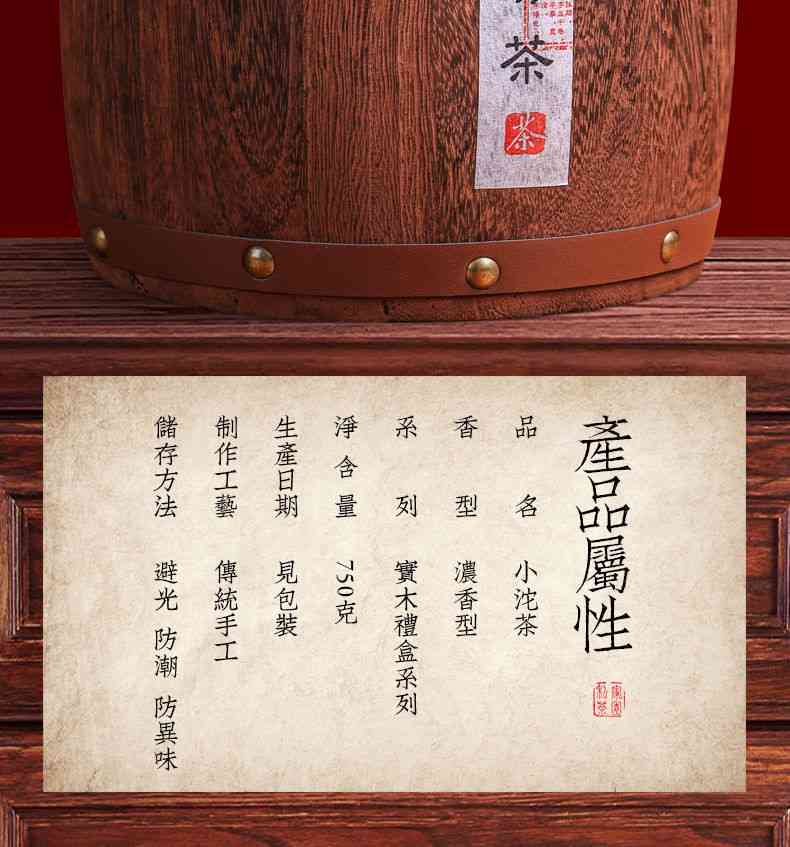 茶
茶
產品屬性
品名 小沱茶
香型 濃香型
系列 實木禮盒系列
淨含量 750克
生產日期 見包裝
制作工藝 傳統手工
儲存方法 避光 防潮 防異味